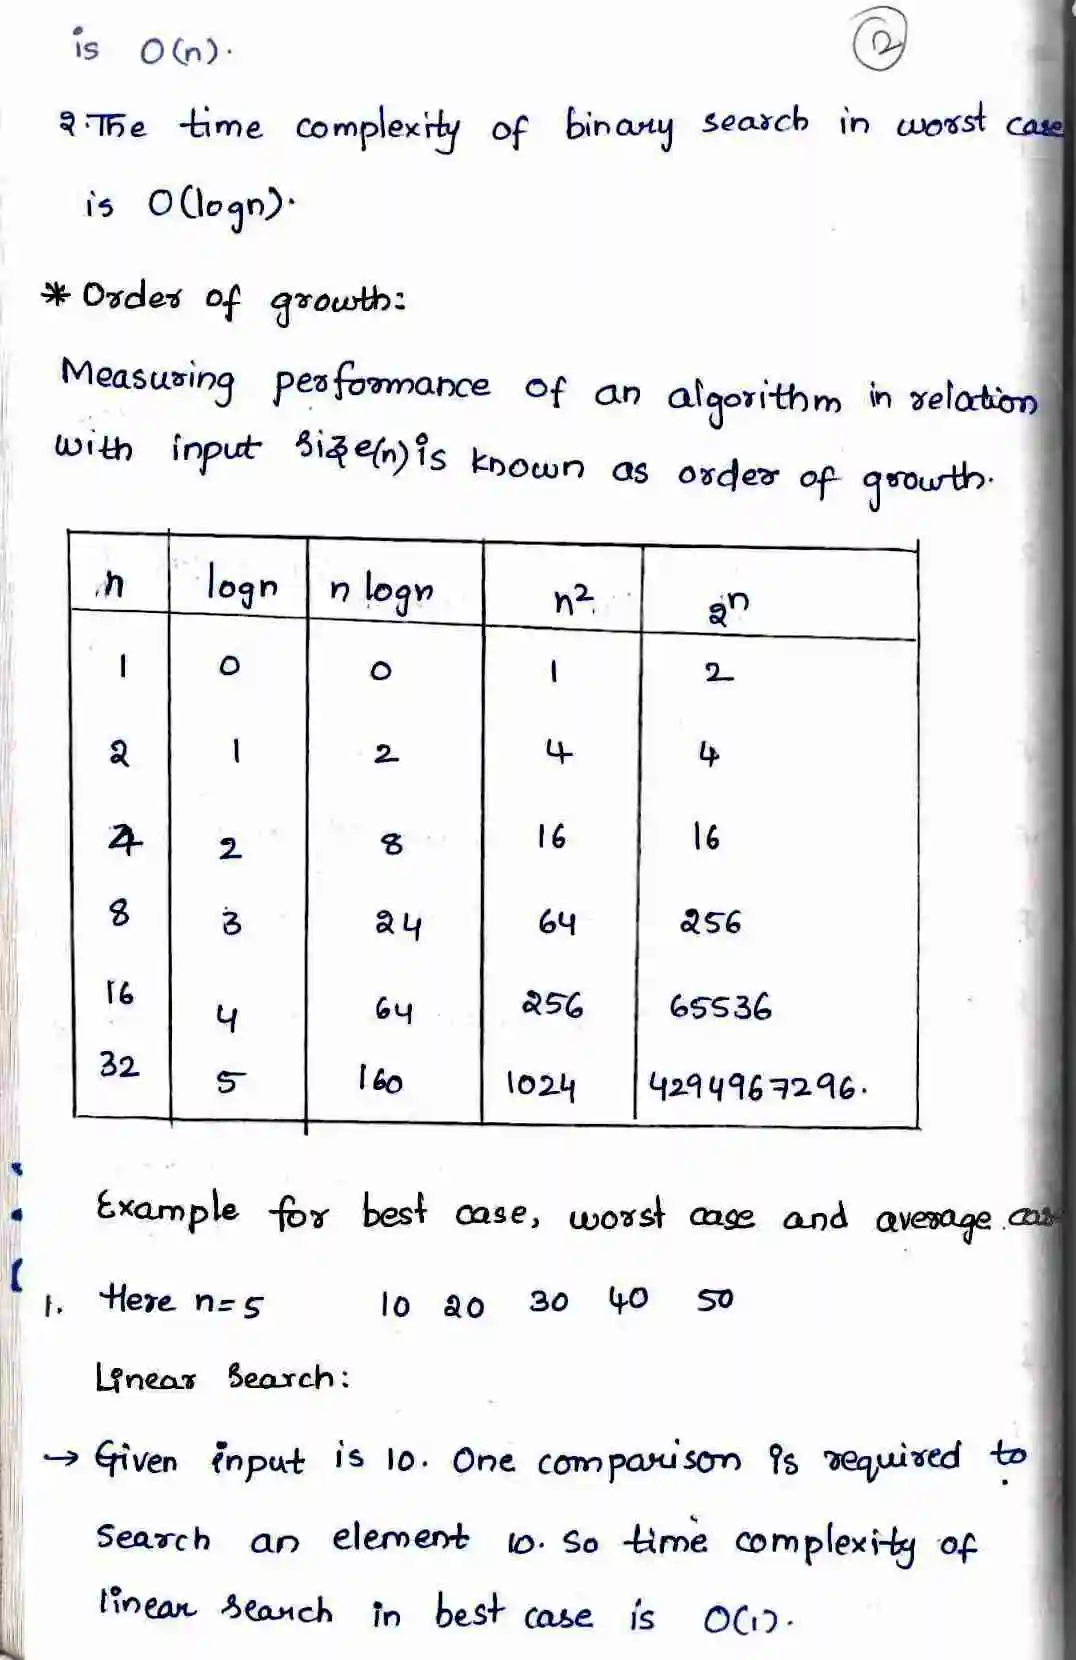 is O(n).
2
2. The time complexity of binary search in worst case
is O(logn).
* Order of growth:
Measuring performance of an algorithm in relation
with input size(n) is known as order of growth.
n logn n logn n² 2ⁿ
1 0 0 1 2
2 1 2 4 4
4 2 8 16 16
8 3 24 64 256
16 4 64 256 65536
32 5 160 1024 4294967296.
Example for best case, worst case and average
1. Here n=5 10 20 30 40 50
Linear Search:
→ Given input is 10. One comparison is required to
Search an element 10. So time complexity of
linear search in best case is O(1).